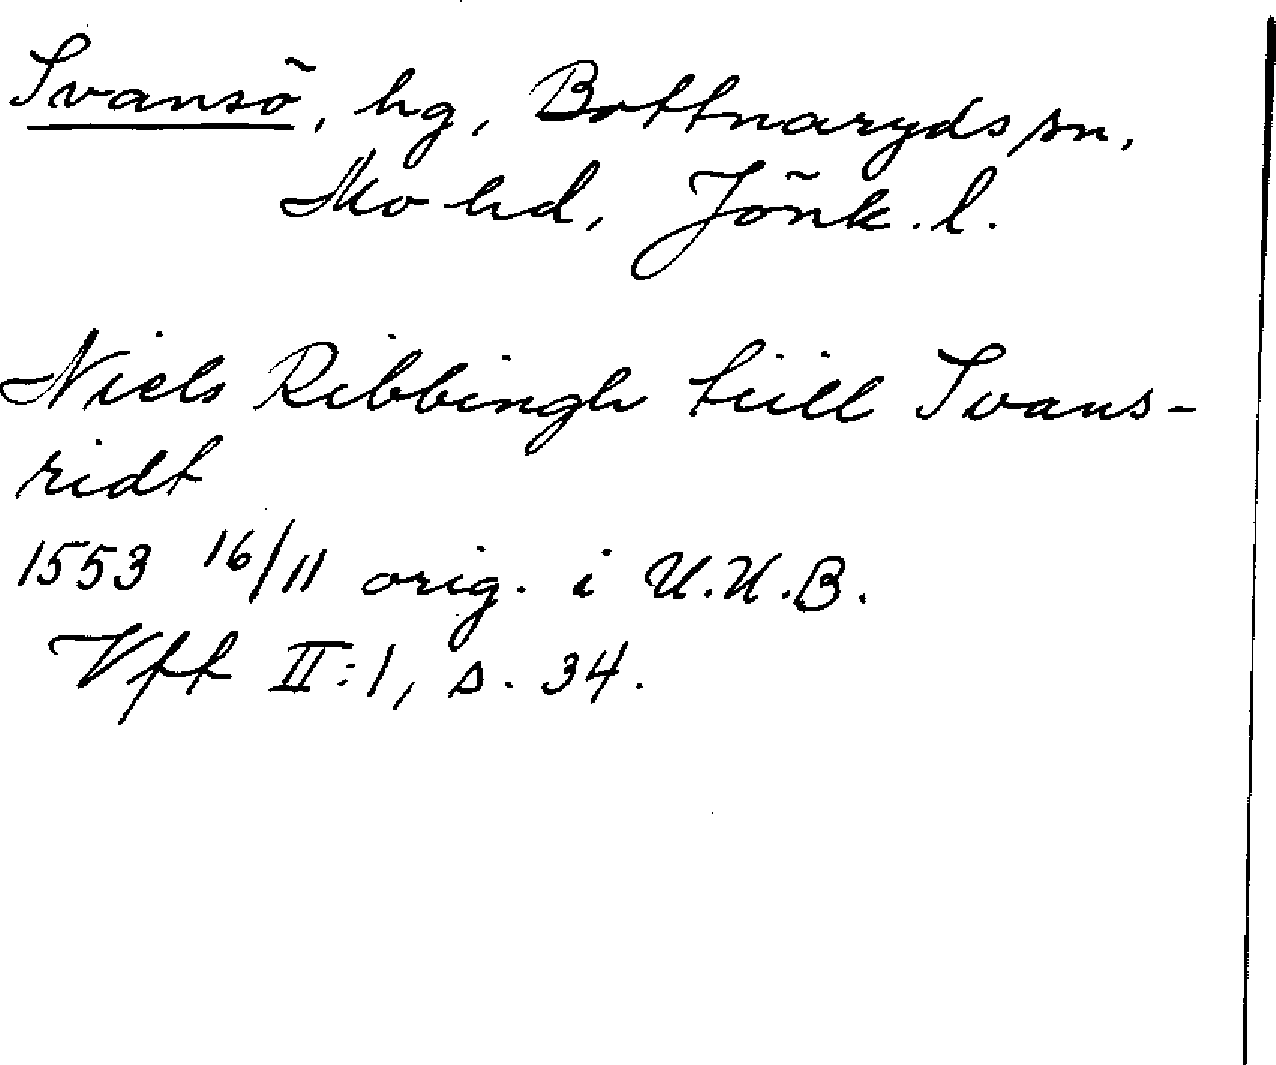 Svansö, hg, Bottnaryds sn,
Mo hd, Jönk. l.
Niels Ribbingh tiill Svans-
ridt
1553 16/11 orig. i U.U.B.
Vff II:1, s. 34.